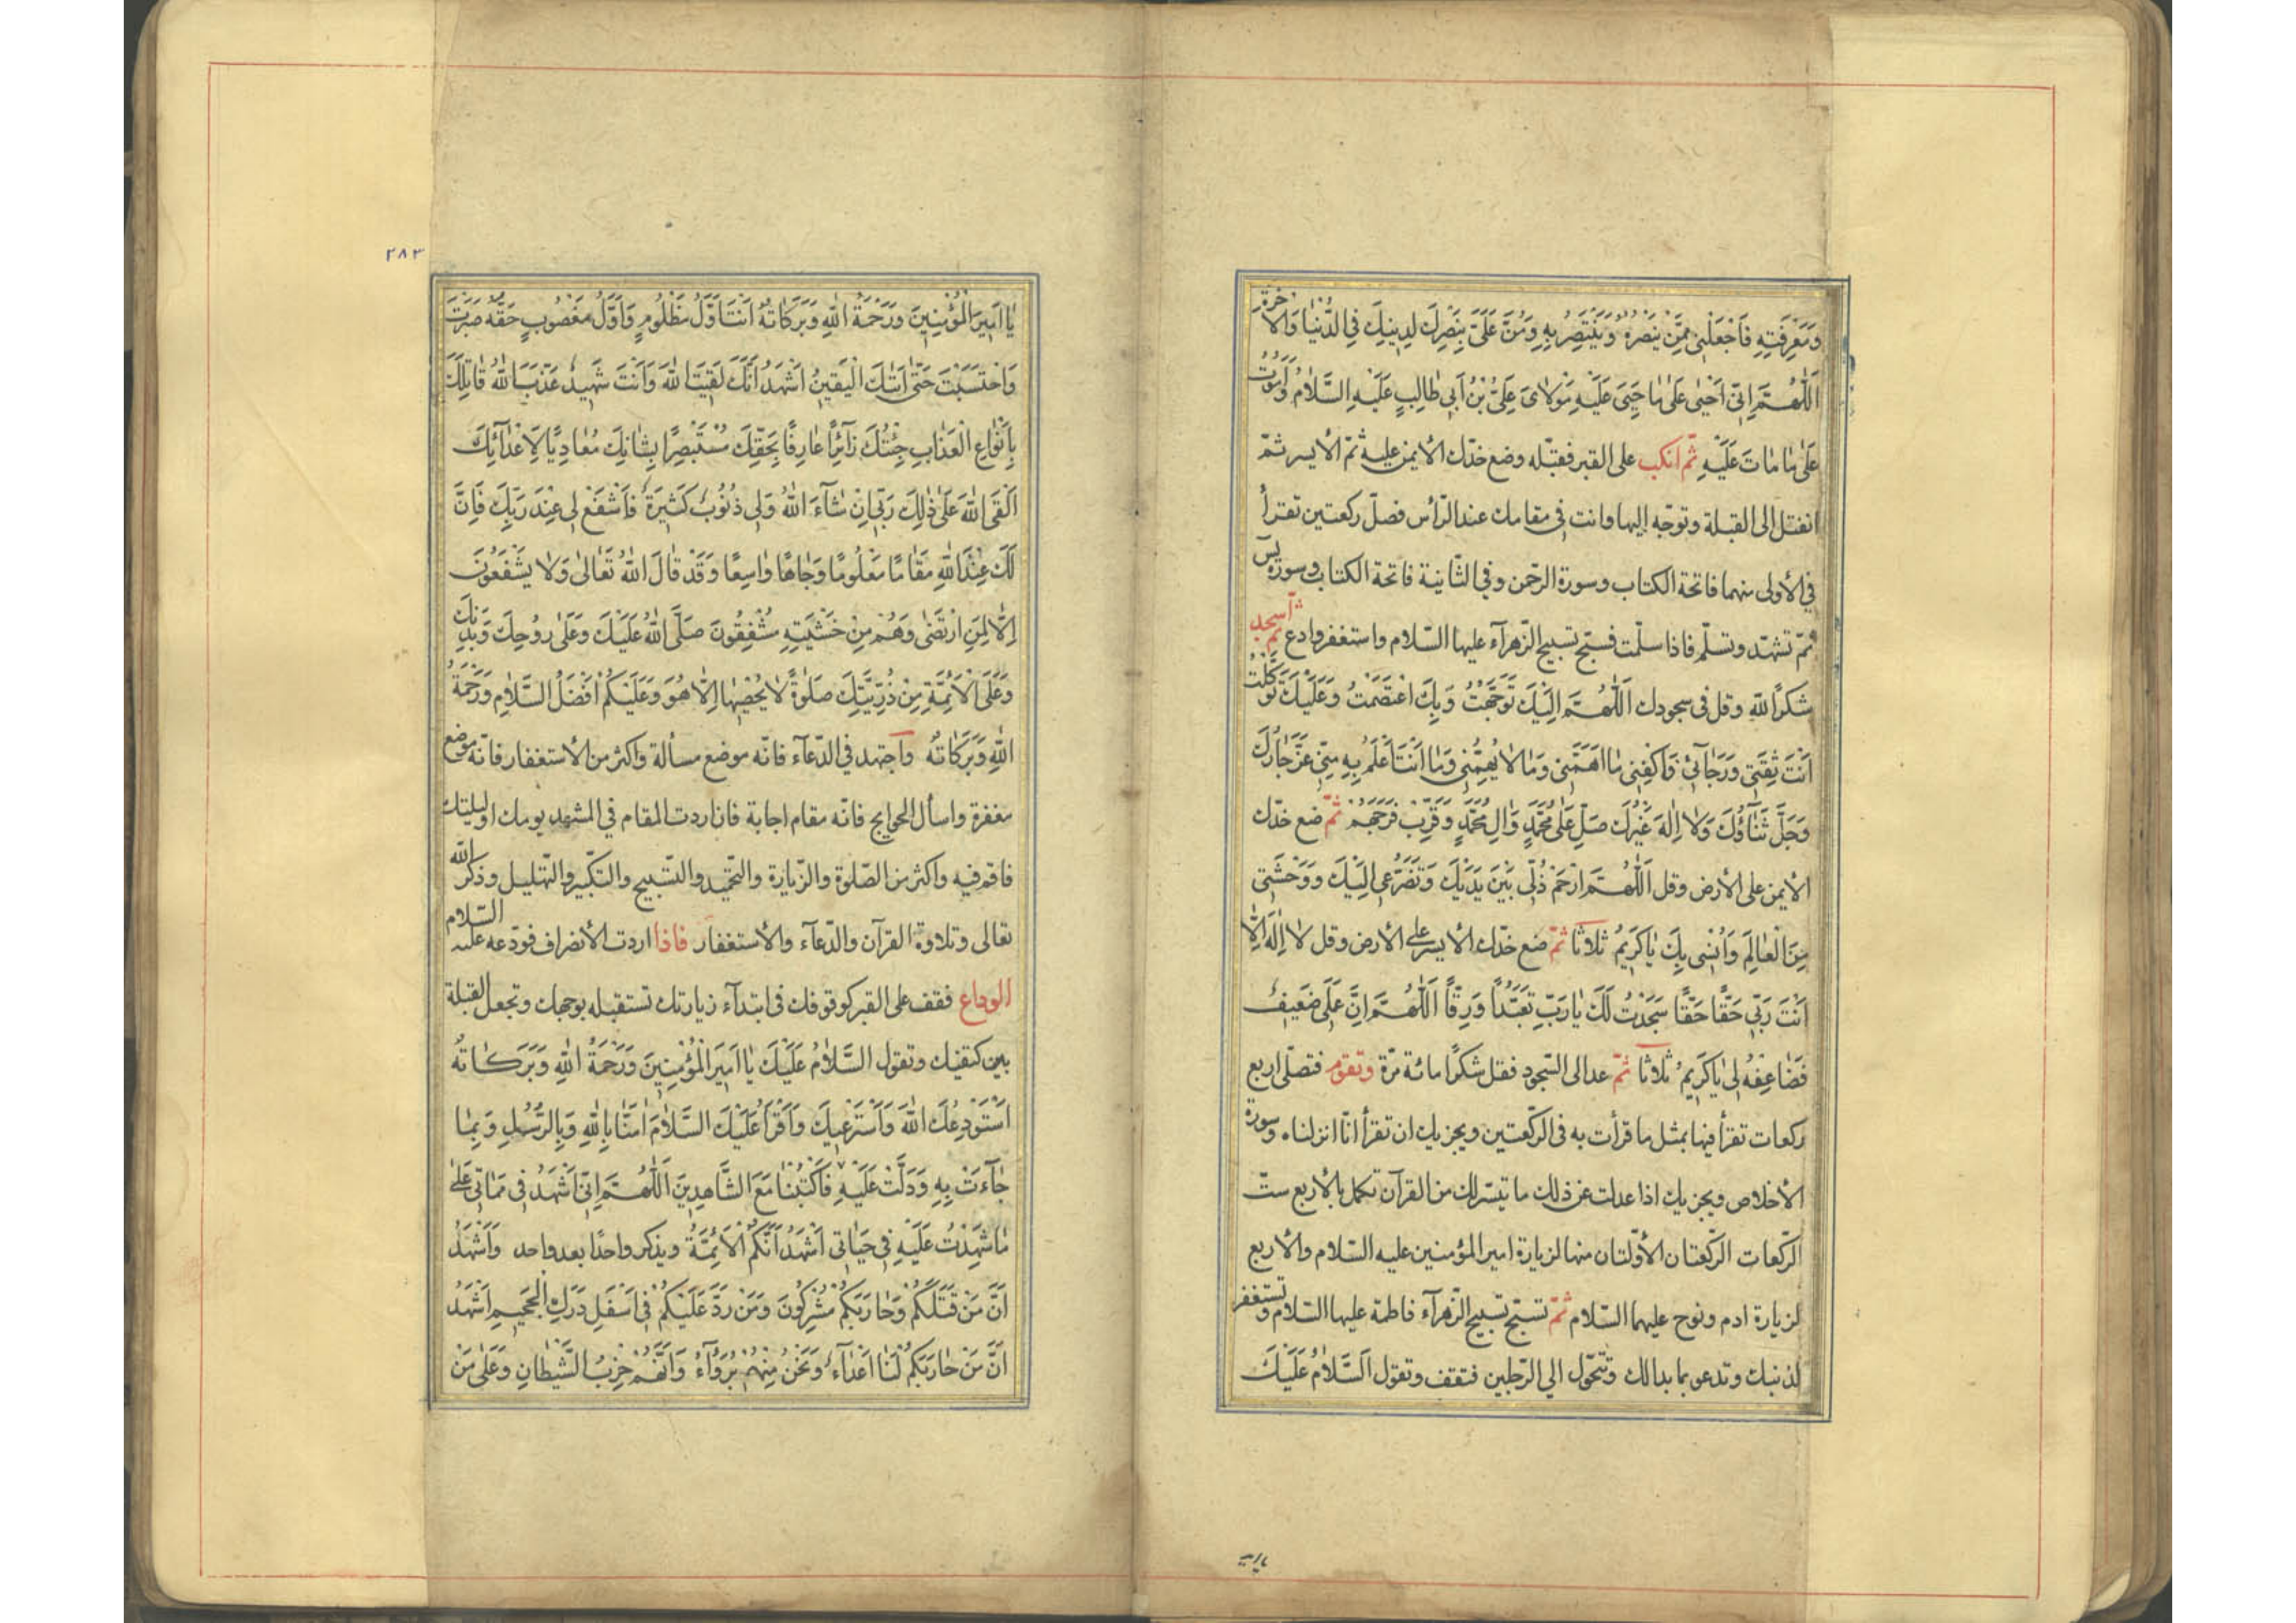 وَمَعْرِفَتِهِ فَاجْعَلْنِي مِمَّنْ يَنْصُرُهُ وَيَنْتَصِرُ بِهِ وَمُنَّ عَلَيَّ بِنَصْرِكَ لِدِينِكَ فِي الدُّنْيَا وَالْآخِرَةِ
اَللّٰهُمَّ اِنِّي اَحْيٰى عَلٰى مَا حَيِيَ عَلَيْهِ مَوْلَايَ عَلِيُّ بْنُ اَبِي طَالِبٍ عَلَيْهِ السَّلَامُ وَاَمُوتُ
عَلٰى مَا مَاتَ عَلَيْهِ ثمّ انكب على القبر فقبّله وضع خدّك الأيمن عليه ثمّ الأيسر ثمّ
انفتل الى القبلة وتوجّه إليها وانت في مقامك عند الرّأس فصلّ ركعتين تقرأ
في الأولى منهما فاتحة الكتاب وسورة الرّحمن وفي الثّانية فاتحة الكتاب وسورة يٓس
ثمّ تشهّد وتسلّم فاذا سلّمت فسبّح تسبيح الزّهرآء عليها السّلام واستغفر وادع ثمّ اسجد
شكرًا لله وقل في سجودك اَللّٰهُمَّ اِلَيْكَ تَوَجَّهْتُ وَبِكَ اعْتَصَمْتُ وَعَلَيْكَ تَوَكَّلْتُ
اَنْتَ ثِقَتِي وَرَجَآئِي فَاكْفِنِي مَا اَهَمَّنِي وَمَا لَا يُهِمُّنِي وَمَا اَنْتَ اَعْلَمُ بِهِ مِنِّي عَزَّ جَارُكَ
وَجَلَّ ثَنَآؤُكَ وَلَا اِلٰهَ غَيْرُكَ صَلِّ عَلٰى مُحَمَّدٍ وَاٰلِ مُحَمَّدٍ وَقَرِّبْ فَرَجَهُمْ ثمّ ضع خدّك
الأيمن على الأرض وقل اَللّٰهُمَّ ارْحَمْ ذُلِّي بَيْنَ يَدَيْكَ وَتَضَرُّعِي اِلَيْكَ وَوَحْشَتِي
مِنَ الْعَالَمِ وَاُنْسِي بِكَ يَا كَرِيمُ ثلاثا ثمّ ضع خدّك الأيسر على الأرض وقل لَا اِلٰهَ اِلَّا
اَنْتَ رَبِّي حَقًّا حَقًّا سَجَدْتُ لَكَ يَا رَبِّ تَعَبُّدًا وَرِقًّا اَللّٰهُمَّ اِنَّ عَمَلِي ضَعِيفٌ
فَضَاعِفْهُ لِي يَا كَرِيمُ ثلاثا ثمّ عد الى السّجود فقل شكرًا مائة مرّة وتقوم فتصلّي اربع
ركعات تقرأ فيها بمثل ما قرأت به في الرّكعتين ويجزيك ان تقرأ انّا انزلناه وسورة
الأخلاص ويجزيك اذا عدلت عن ذلك ما تيسّر لك من القرآن تكمل بالأربع ستّ
الرّكعات الرّكعتان الأوّلتان منها لزيارة امير المؤمنين عليه السّلام والأربع
لزيارة ادم ونوح عليهما السّلام ثمّ تسبّح تسبيح الزّهرآء فاطمة عليها السّلام وتستغفر
لذنبك وتدعو بما بدالك وتتحوّل الي الرّجلين فتقف وتقول اَلسَّلَامُ عَلَيْكَ
٢٨٣
يَا اَمِيرَ الْمُؤْمِنِينَ وَرَحْمَةُ اللّٰهِ وَبَرَكَاتُهُ اَنْتَ اَوَّلُ مَظْلُومٍ وَاَوَّلُ مَغْصُوبٍ حَقُّهُ صَبَرْتَ
وَاحْتَسَبْتَ حَتّٰى اَتٰيكَ الْيَقِينُ اَشْهَدُ اَنَّكَ لَقِيتَ اللّٰهَ وَاَنْتَ شَهِيدٌ عَذَّبَ اللّٰهُ قَاتِلَكَ
بِاَنْوَاعِ الْعَذَابِ جِئْتُكَ زَآئِرًا عَارِفًا بِحَقِّكَ مُسْتَبْصِرًا بِشَانِكَ مُعَادِيًا لِاَعْدَآئِكَ
اَلْقَى اللّٰهَ عَلٰى ذٰلِكَ رَبِّي اِنْ شَآءَ اللّٰهُ وَلِي ذُنُوبٌ كَثِيرَةٌ فَاشْفَعْ لِي عِنْدَ رَبِّكَ فَاِنَّ
لَكَ عِنْدَ اللّٰهِ مَقَامًا مَعْلُومًا وَجَاهًا وَاسِعًا وَقَدْ قَالَ اللّٰهُ تَعَالٰى وَلَا يَشْفَعُونَ
اِلَّا لِمَنِ ارْتَضٰى وَهُمْ مِنْ خَشْيَتِهِ مُشْفِقُونَ صَلَّى اللّٰهُ عَلَيْكَ وَعَلٰى رُوحِكَ وَبَدَنِكَ
وَعَلَى الْاَئِمَّةِ مِنْ ذُرِّيَّتِكَ صَلٰوةً لَا يُحْصِيهَا اِلَّا هُوَ وَعَلَيْكُمْ اَفْضَلُ السَّلَامِ وَرَحْمَةُ
اللّٰهِ وَبَرَكَاتُهُ واجتهد في الدّعآء فانّه موضع مسألة واكثر من الأستغفار فانّه موضع
مغفرة واسأل الحوايج فانّه مقام اجابة فان اردت المقام في المشهد يومك اوليلتك
فاقم فيه واكثر من الصّلوة والزّيارة والتحميد والتّسبيح والتكبير والتهليل وذكر الله
تعالى وتلاوة القرآن والدّعآء والأستغفار فاذا اردت الأنصراف فودّعه عليه السّلام
الوداع فقف على القبر كوقوفك في ابتدآء زيارتك تستقبله بوجهك وتجعل القبلة
بين كتفيك وتقول السَّلَامُ عَلَيْكَ يَا اَمِيرَ الْمُؤْمِنِينَ وَرَحْمَةُ اللّٰهِ وَبَرَكَاتُهُ
اَسْتَوْدِعُكَ اللّٰهَ وَاَسْتَرْعِيكَ وَاَقْرَاُ عَلَيْكَ السَّلَامَ اٰمَنَّا بِاللّٰهِ وَبِالرُّسُلِ وَبِمَا
جَآءَتْ بِهِ وَدَلَّتْ عَلَيْهِ فَاكْتُبْنَا مَعَ الشَّاهِدِينَ اَللّٰهُمَّ اِنِّي اَشْهَدُ فِي مَمَاتِي عَلٰى
مَا شَهِدْتُ عَلَيْهِ فِي حَيَاتِي اَشْهَدُ اَنَّكُمُ الْاَئِمَّةُ ويذكر واحدًا بعد واحد وَاَشْهَدُ
اَنَّ مَنْ قَتَلَكُمْ وَحَارَبَكُمْ مُشْرِكُونَ وَمَنْ رَدَّ عَلَيْكُمْ فِي اَسْفَلِ دَرَكِ الْجَحِيمِ اَشْهَدُ
اَنَّ مَنْ حَارَبَكُمْ لَنَا اَعْدَآءٌ وَنَحْنُ مِنْهُمْ بُرَءَآءُ وَاَنَّهُمْ حِزْبُ الشَّيْطَانِ وَعَلٰى مَنْ